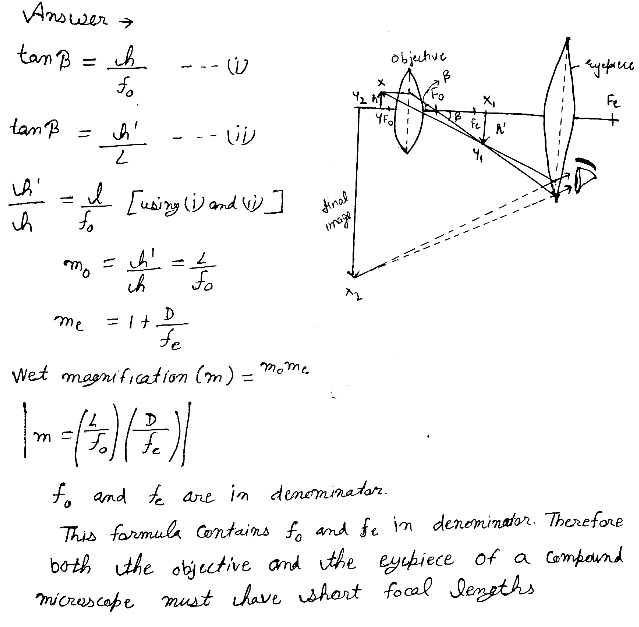 Answer →
tan β = h/f₀ ---- (i)
tan β = h'/L --- (ii)
h'/h = L/f₀ [using (i) and (ii)]
m₀ = h'/h = L/f₀
mₑ = 1 + D/fₑ
Net magnification (m) = m₀mₑ
|m = (L/f₀)(D/fₑ)|
f₀ and fₑ are in denominator.
This formula contains f₀ and fₑ in denominator. Therefore
both the objective and the eyepiece of a compound
microscope must have short focal lengths
objective
β
eyepiece
X
F₀
X₁
Fₑ
Y₂
h
YF₀
β
fₑ
h'
Y₁
final
image
X₂